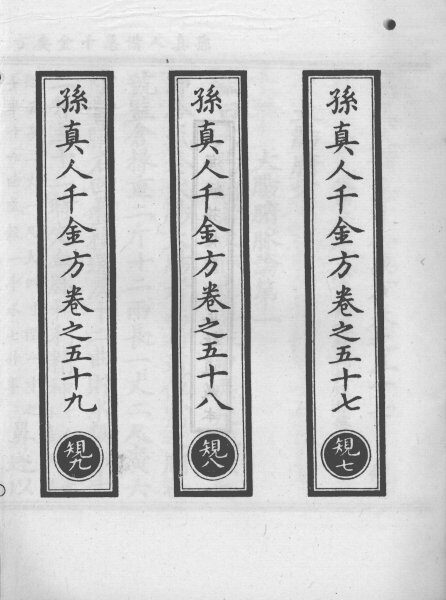 孫真人千金方卷之五十七
規七
孫真人千金方卷之五十八
規八
孫真人千金方卷之五十九
規九